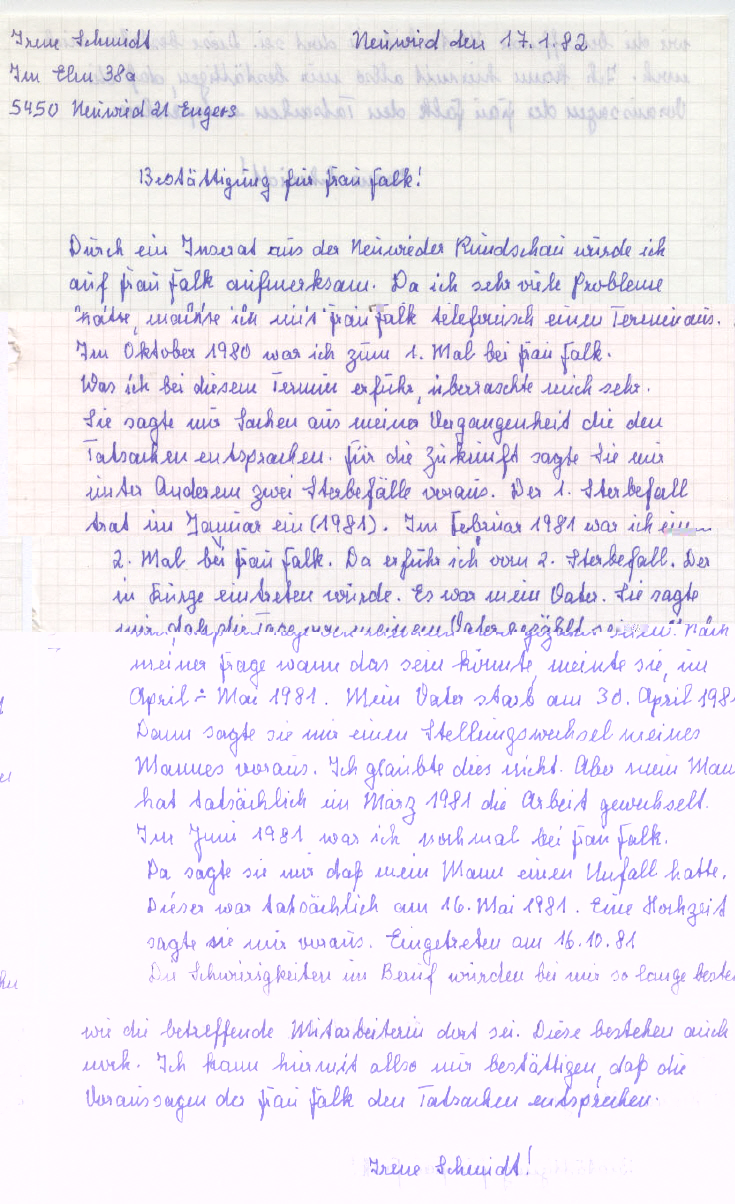 Irene Schmidt Neuwied den 17.1.82
Im Elm 38a
5450 Neuwied 21 Engers
Bestättigung für Frau Falk!
Durch ein Inserat aus der Neuwieder Rundschau wurde ich
auf Frau Falk aufmerksam. Da ich sehr viele Probleme
hatte, machte ich mit Frau Falk telefonisch einen Termin aus.
Im Oktober 1980 war ich zum 1. Mal bei Frau Falk.
Was ich bei diesem Termin erfuhr, überraschte mich sehr.
Sie sagte mir Sachen aus meiner Vergangenheit die den
Tatsachen entsprachen. Für die Zukunft sagte Sie mir
unter Anderem zwei Sterbefälle voraus. Der 1. Sterbefall
trat im Januar ein (1981). Im Februar 1981 war ich ein
2. Mal bei Frau Falk. Da erfuhr ich vom 2. Sterbefall. Der
in Kürze eintreten würde. Es war mein Vater. Sie sagte
mir, daß die Tage von meinem Vater gezählt Nach
meiner Frage wann das sein könnte, meinte sie, im
April - Mai 1981. Mein Vater starb am 30. April 1981
Dann sagte sie mir einen Stellungswechsel meines
Mannes voraus. Ich glaubte dies nicht. Aber mein Mann
hat tatsächlich im März 1981 die Arbeit gewechselt.
Im Juni 1981 war ich nochmal bei Frau Falk.
Da sagte sie mir daß mein Mann einen Unfall hatte.
Dieser war tatsächlich am 16. Mai 1981. Eine Hochzeit
sagte sie mir voraus. Eingetreten am 16.10.81
Die Schwirigkeiten im Beruf würden bei mir so lange beste
wie die betreffende Mitarbeiterin dort sei. Diese bestehen auch
noch. Ich kann hiermit allso nur bestättigen, daß die
Voraussagen der Frau Falk den Tatsachen entsprechen.
Irene Schmidt!